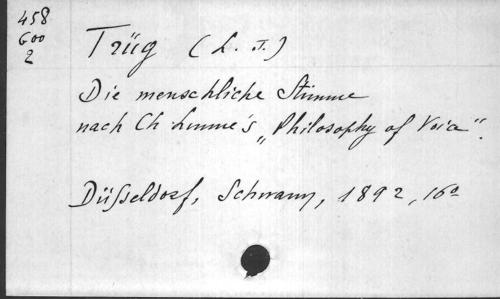 458
600
2
Trüg (L. J.)
Die menschliche Stimme
nach Ch Lunne's „Philosophy of Voice".
Düsseldorf, Schwann, 1892, 16°